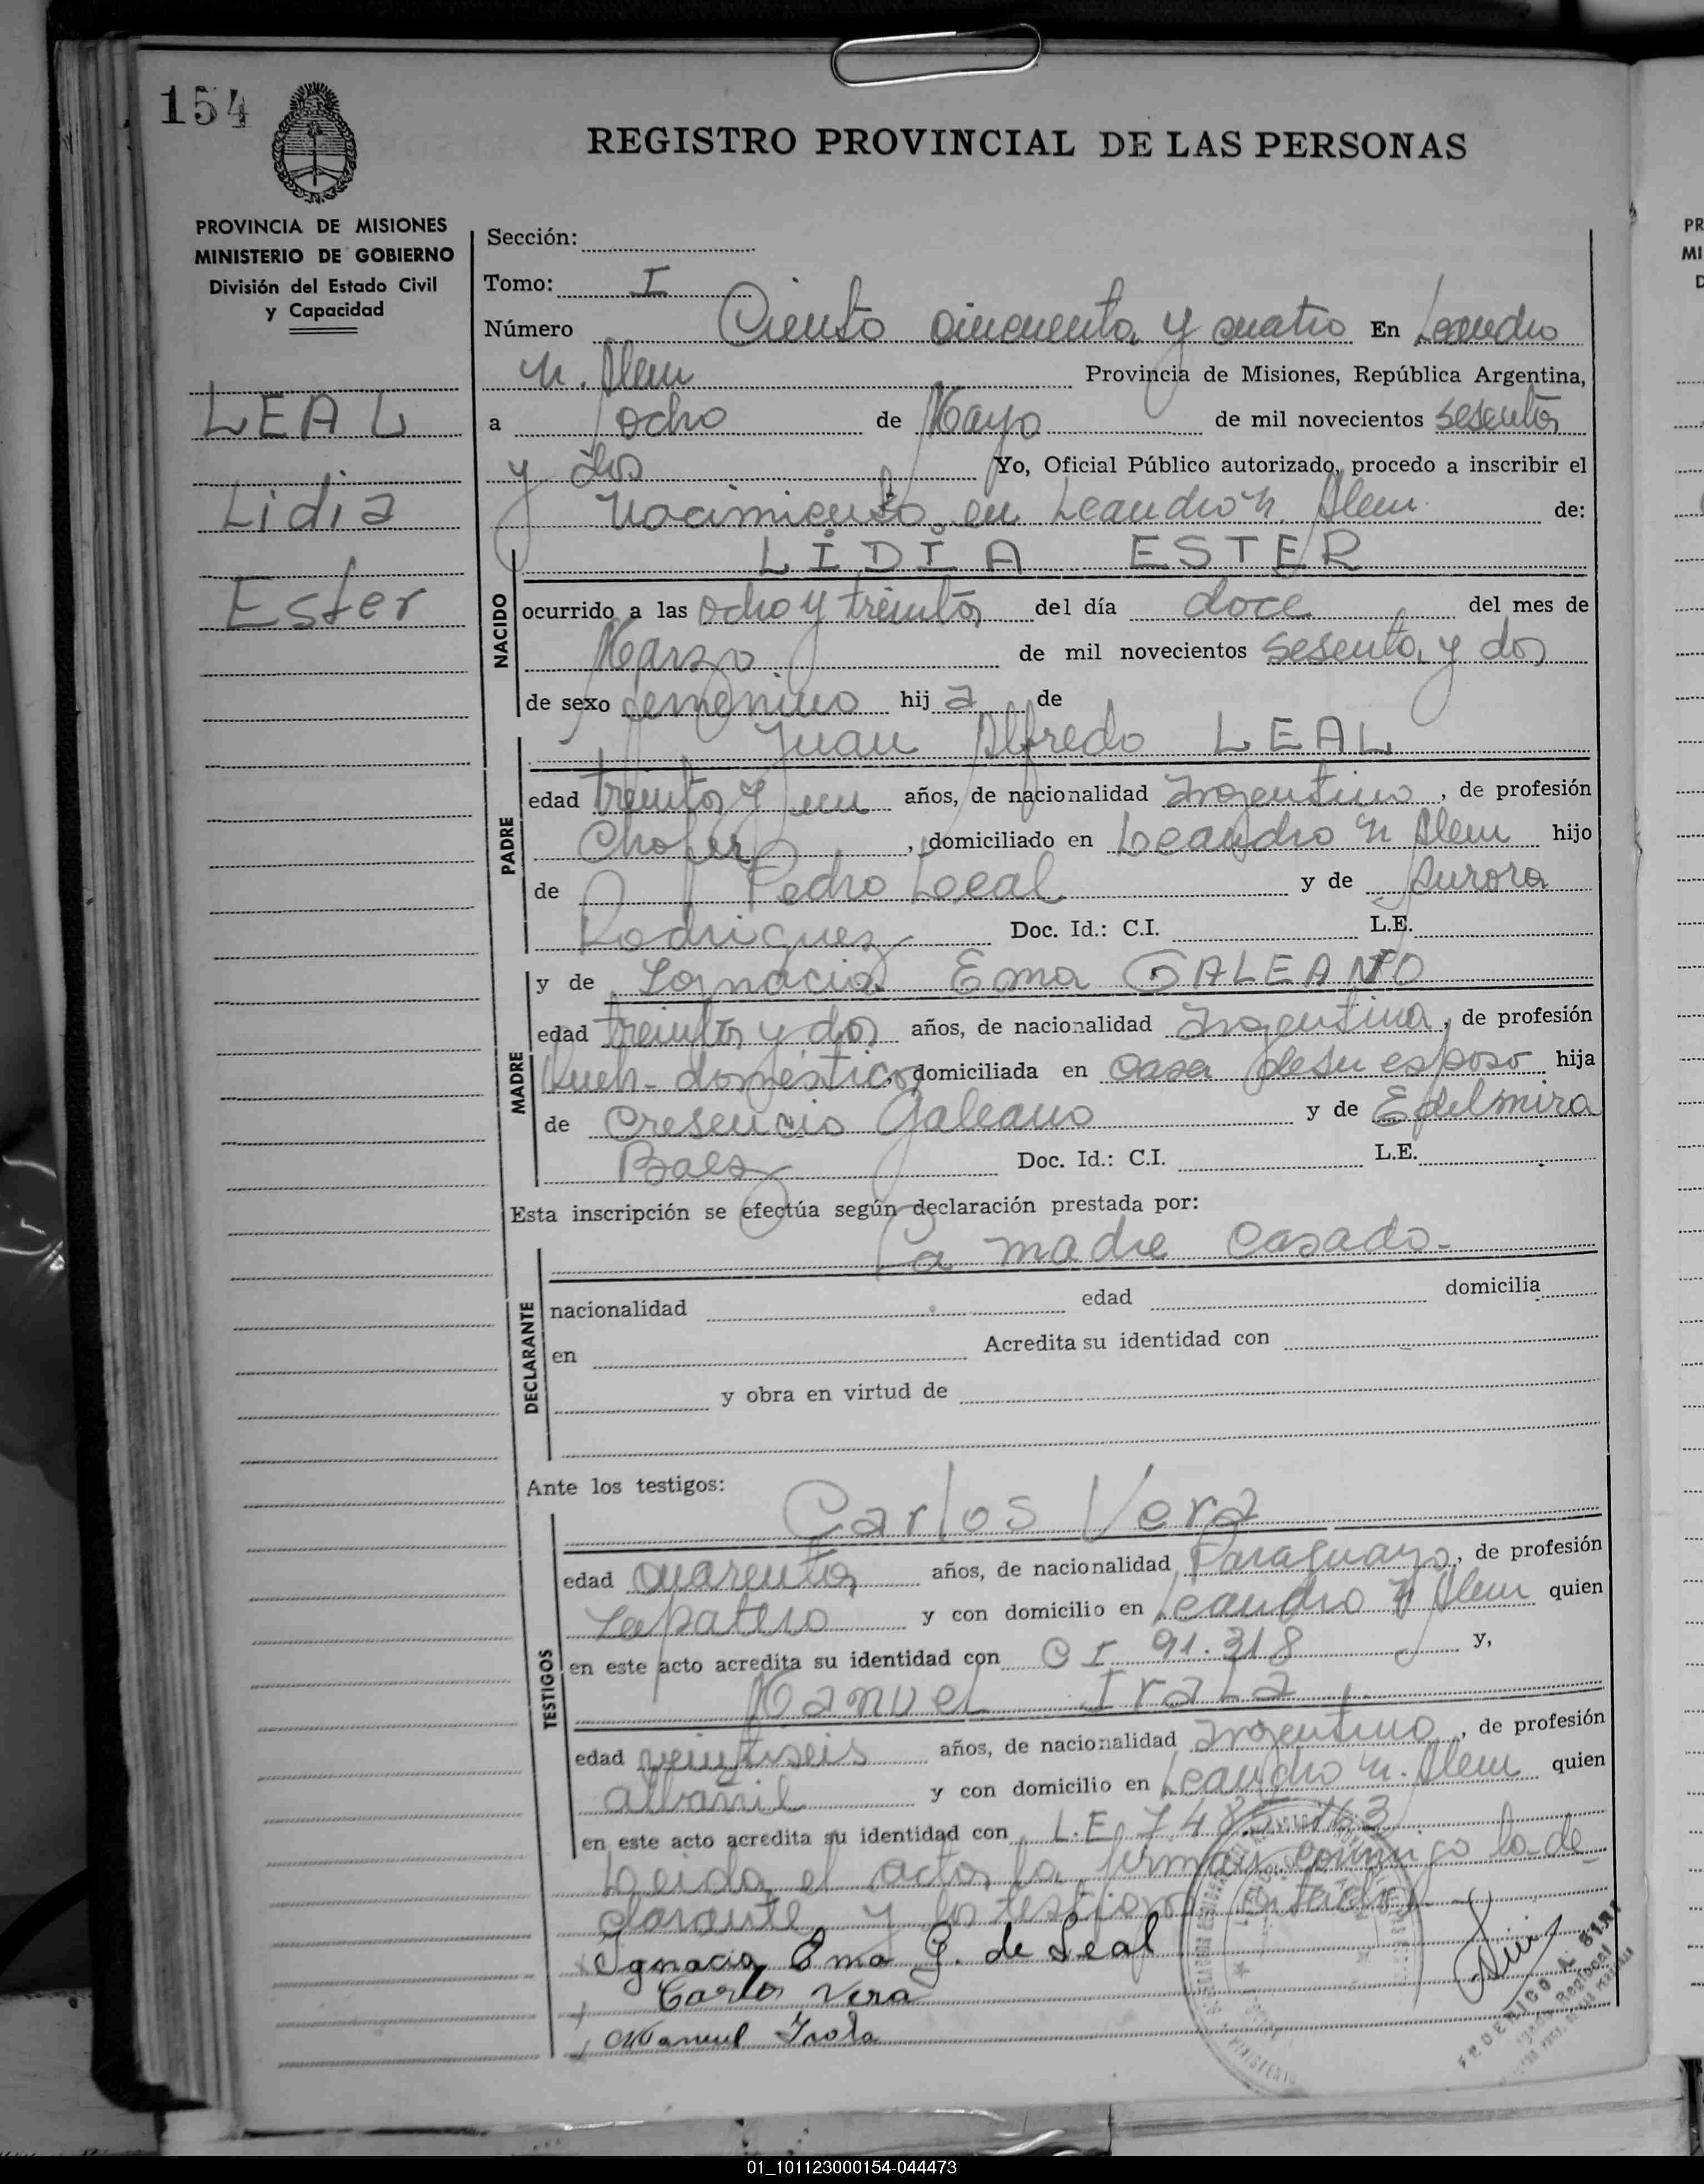 154
REGISTRO PROVINCIAL DE LAS PERSONAS
PROVINCIA DE MISIONES
MINISTERIO DE GOBIERNO
División del Estado Civil
y Capacidad
LEAL
Lidia
Ester
Sección:
Tomo: I
Número Ciento cincuenta y cuatro En Leandro
N. Alem Provincia de Misiones, República Argentina,
a ocho de Mayo de mil novecientos sesenta
y dos Yo, Oficial Público autorizado, procedo a inscribir el
nacimiento en Leandro N. Alem de:
LIDIA ESTER
NACIDO
ocurrido a las ocho y treinta del día doce del mes de
Marzo de mil novecientos sesenta y dos
de sexo femenino hij a de
Juan Alfredo LEAL
PADRE
edad treinta y un años, de nacionalidad Argentino, de profesión
Chofer, domiciliado en Leandro N Alem hijo
de Pedro Leal y de Aurora
Rodriguez Doc. Id.: C.I. L.E.
MADRE
y de Ignacia Ema GALEANO
edad treinta y dos años, de nacionalidad Argentina, de profesión
Queh-domestico, domiciliada en casa de su esposo hija
de Cresencio Galeano y de Edelmira
Baez Doc. Id.: C.I. L.E.
Esta inscripción se efectúa según declaración prestada por:
La madre Casado-
DECLARANTE
nacionalidad edad domicilia
en Acredita su identidad con
y obra en virtud de
Ante los testigos:
Carlos Vera
TESTIGOS
edad cuarenta años, de nacionalidad Paraguayo, de profesión
Zapatero y con domicilio en Leandro N Alem quien
en este acto acredita su identidad con C I 91.318 y,
Manuel Irala
edad veintiseis años, de nacionalidad Argentino, de profesión
albañil y con domicilio en Leandro N. Alem quien
en este acto acredita su identidad con L.E. 7.485.163
Leida el acta, la firman conmigo la de
clarante y los testigos citados
Ignacia Ema G. de Leal
Carlos Vera
Manuel Irala
FEDERICO A.
01_101123000154-044473